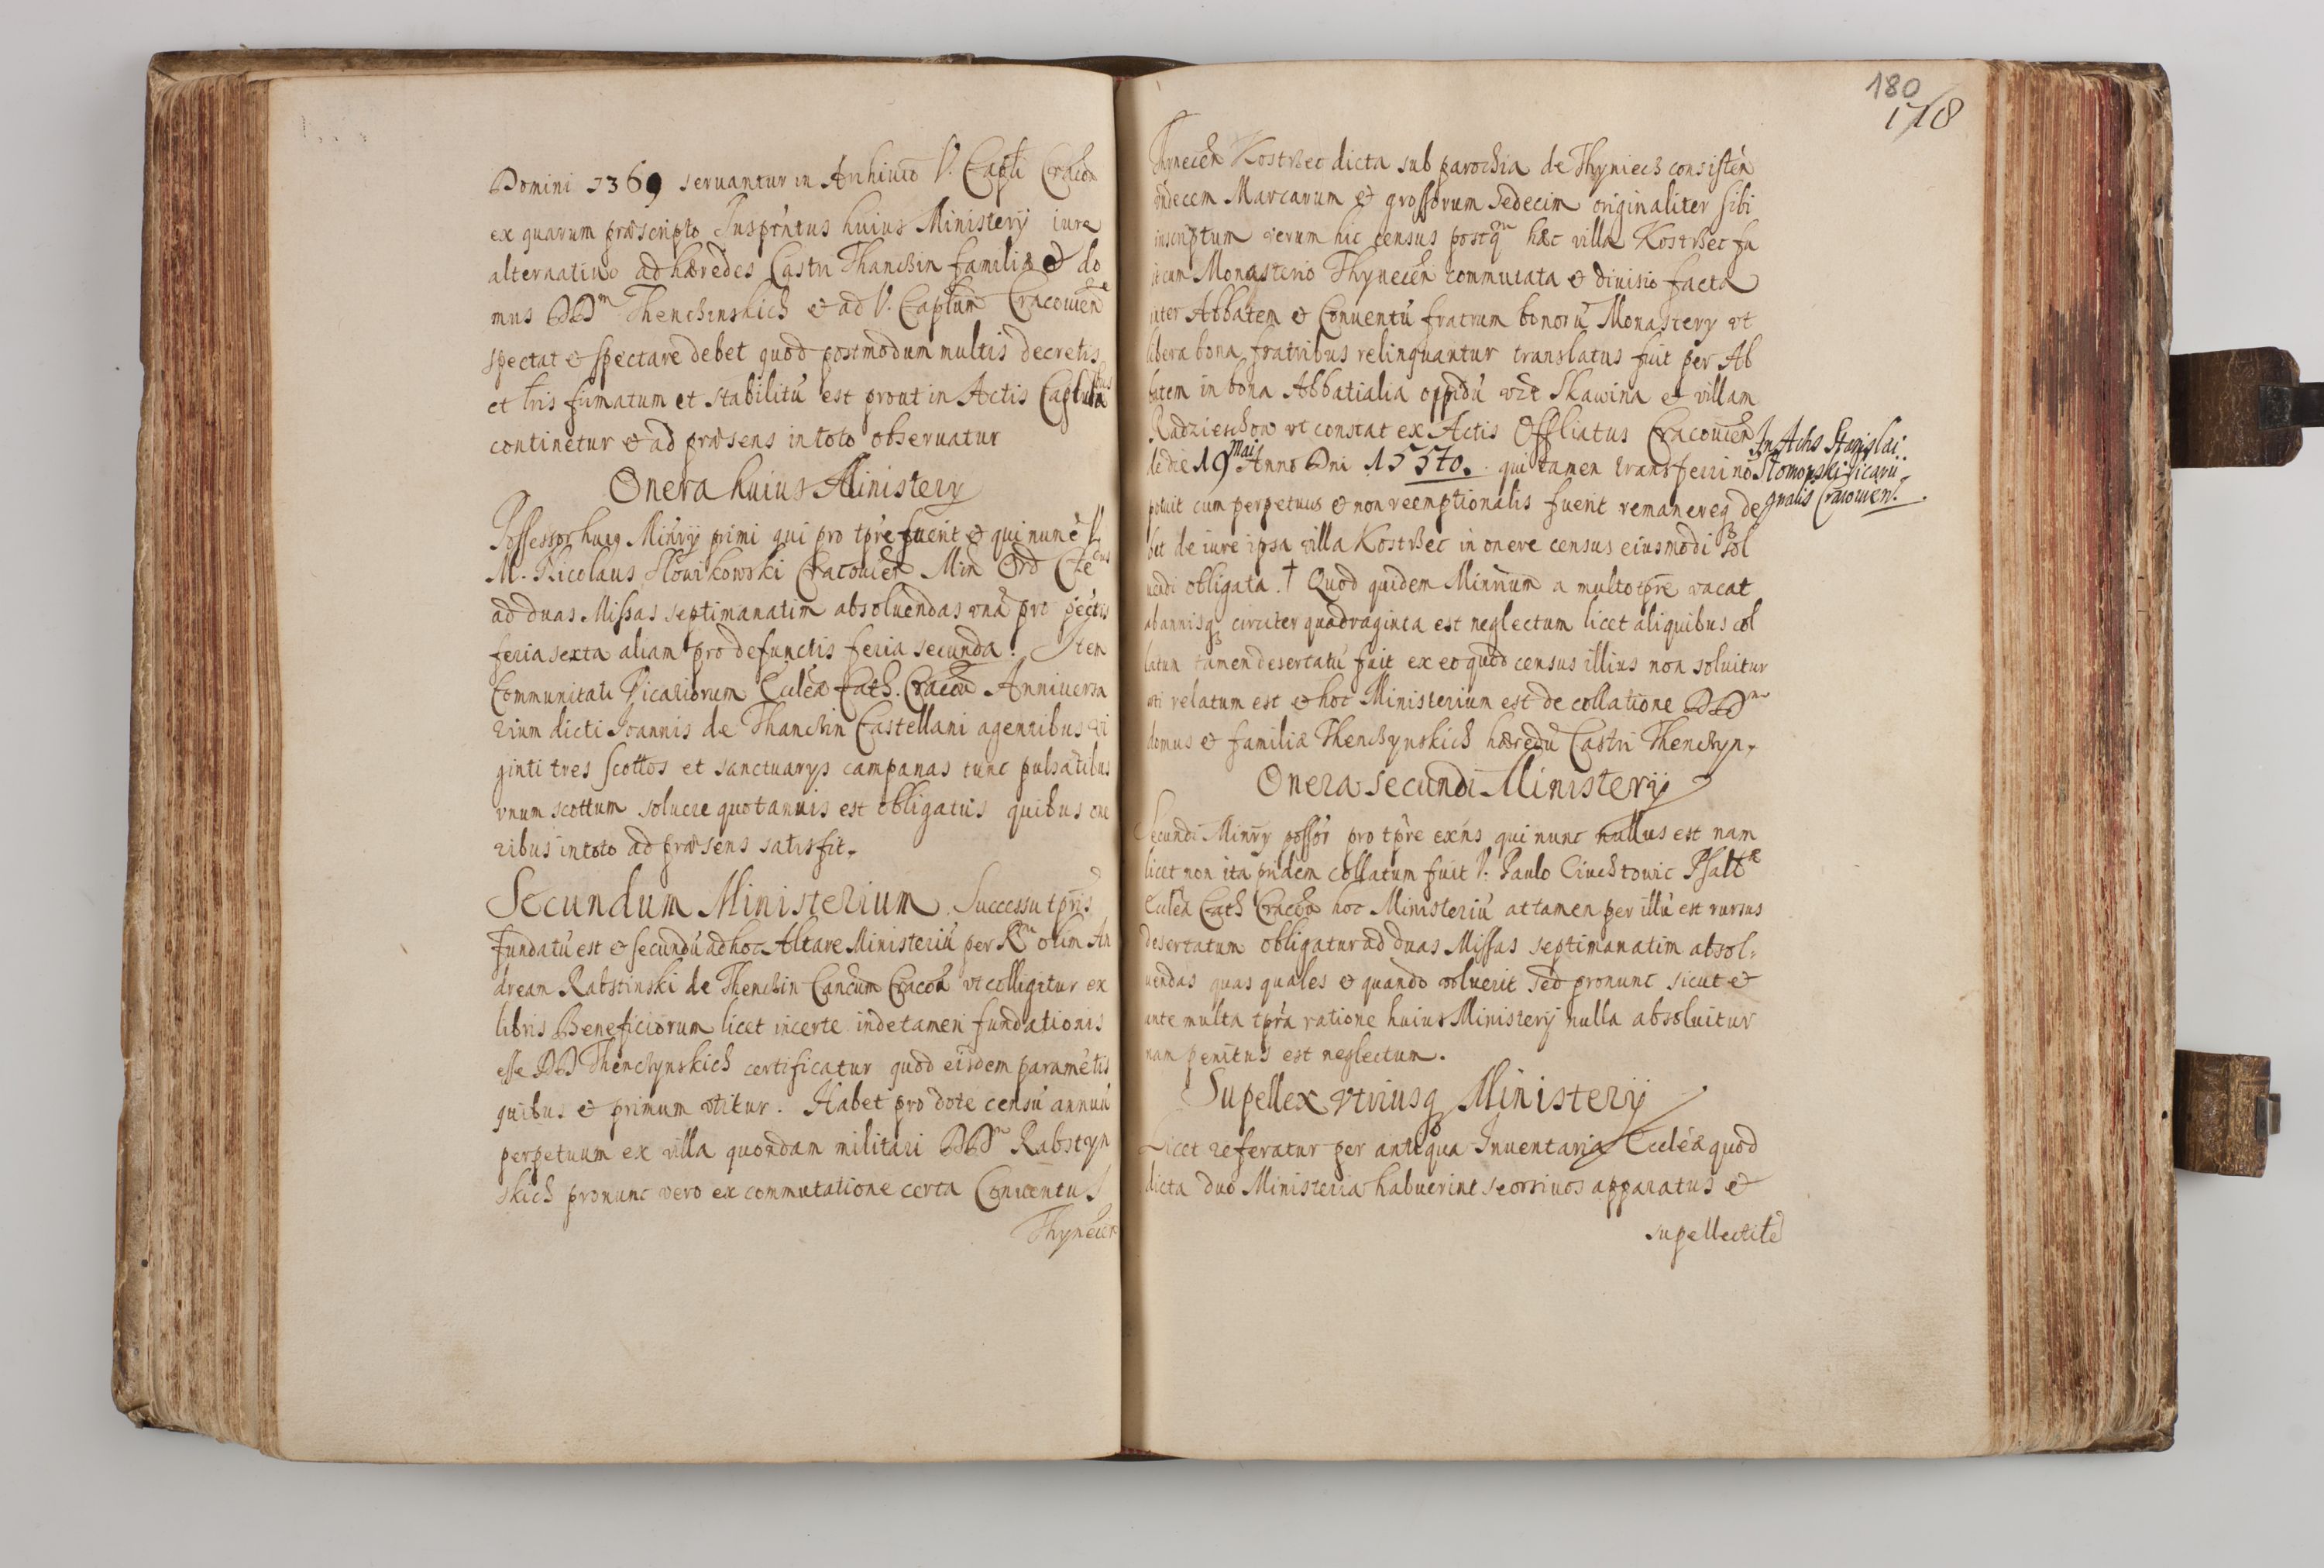 Domini 1369 seruantur in Archiuo V. Capli Cracou
ex quarum præscripto Juspñtus huius Ministerij iure
alternatiuo ad hæredes Castri Thanchin familiæ & do
mus DDm Thenchinskich & ad V. Caplum Cracouien
spectat & spectare debet quod postmodum multis decretis
et lris firmatum et stabilitú est prout in Actis Caplubus
continetur & ad præsens in toto obseruatur
Onera huius Ministerij
Possessor huiq Minrij primi qui pro tpre fuerit & qui nunc è V.
M. Nicolaus Słowikowski Cracouien Min Ord
ad duas Missas septimanatim absoluendas vná pro pectis
feria sexta aliam pro defunctis feria secunda. Item
Communitati Vicariorum Eccleæ Cath. Cracou Anniuersa
rium dicti Joannis de Thanchin Castellani agentibus vi
ginti tres scottos et sanctuarys campanas tunc pulsātibus
vnum scottum soluere quotannis est obligatus quibus one
ribus in toto ad præsens satisfit.
Secundum Ministerium. Successu tpris
fundatú est & secundú ad hoc Altare Ministeriú per Rm olim An
dream Rabstinski de Thenchin Cancum Cracou vt colligitur ex
libris Beneficiorum licet incerte inde tamen fundationis
esse DD Thenchynskich certificatur quod eisdem paramētis
quibus & primum vtitur. Habet pro dote censú annuú
perpetuum ex villa quondam militari DDm Rabstyn
skich pronunc vero ex commutatione certa Conuentus
Thynecien
180
178
Thynecen Kostrzec dicta sub parochia de Thyniech consisten
vndecem Marcarum & grossorum sedecim originaliter sibi
inscriptum verum hic census postqm hæc villa Kostrzec fu
it cum Monasterio Thynecen commutata & diuisio facta
inter Abbatem & Conuentú fratrum bonorú Monastery vt
libera bona fratribus relinquantur translatus fuit per Ab
batem in bona Abbatialia oppidú vzt Skawina & villam
Radzieschow vt constat ex Actis Offliatus Cracouien
de die 19 Mai Anno Dni 15570. qui tamen transferri nō
In Actis Stanislai
Słomowski Vicarii
gnalis Cracouien.
potuit cum perpetuus & non reemptionalis fuerit remanereq de
bet de iure ipsa villa Kostrzec in onere census eiusmodi sol
uendi obligata. † Quod quidem Minrium a multo tpre vacat
ab annisq circiter quadraginta est neglectum licet aliquibus col
latum tamen desertatú fuit ex eo quod census illius non soluitur
vti relatum est & hoc Ministerium est de collatione DDm
domus & familiæ Thenchynskich hæredú Castri Thenchyn.
Onera secundi Ministerij
Secundi Minry possor pro tpre exñs qui nunc nullus est nam
licet non ita pridem collatum fuit V. Paulo Ciuchtowic Psaltæ
Eccleæ Cath Cracou hoc Ministeriú attamen per illú est rursus
desertatum obligatur ad duas Missas septimanatim absol=
uendas quas quales & quando voluerit sed pronunc sicut &
ante multa tpra ratione huius Ministerij nulla absoluitur
nam penitus est neglectum.
Supellex vtriusq Ministerij
Licet referatur per antiqua Inuentaria Eccleæ quod
dicta duo Ministeria habuerint seorsiuos apparatus &
supellectile